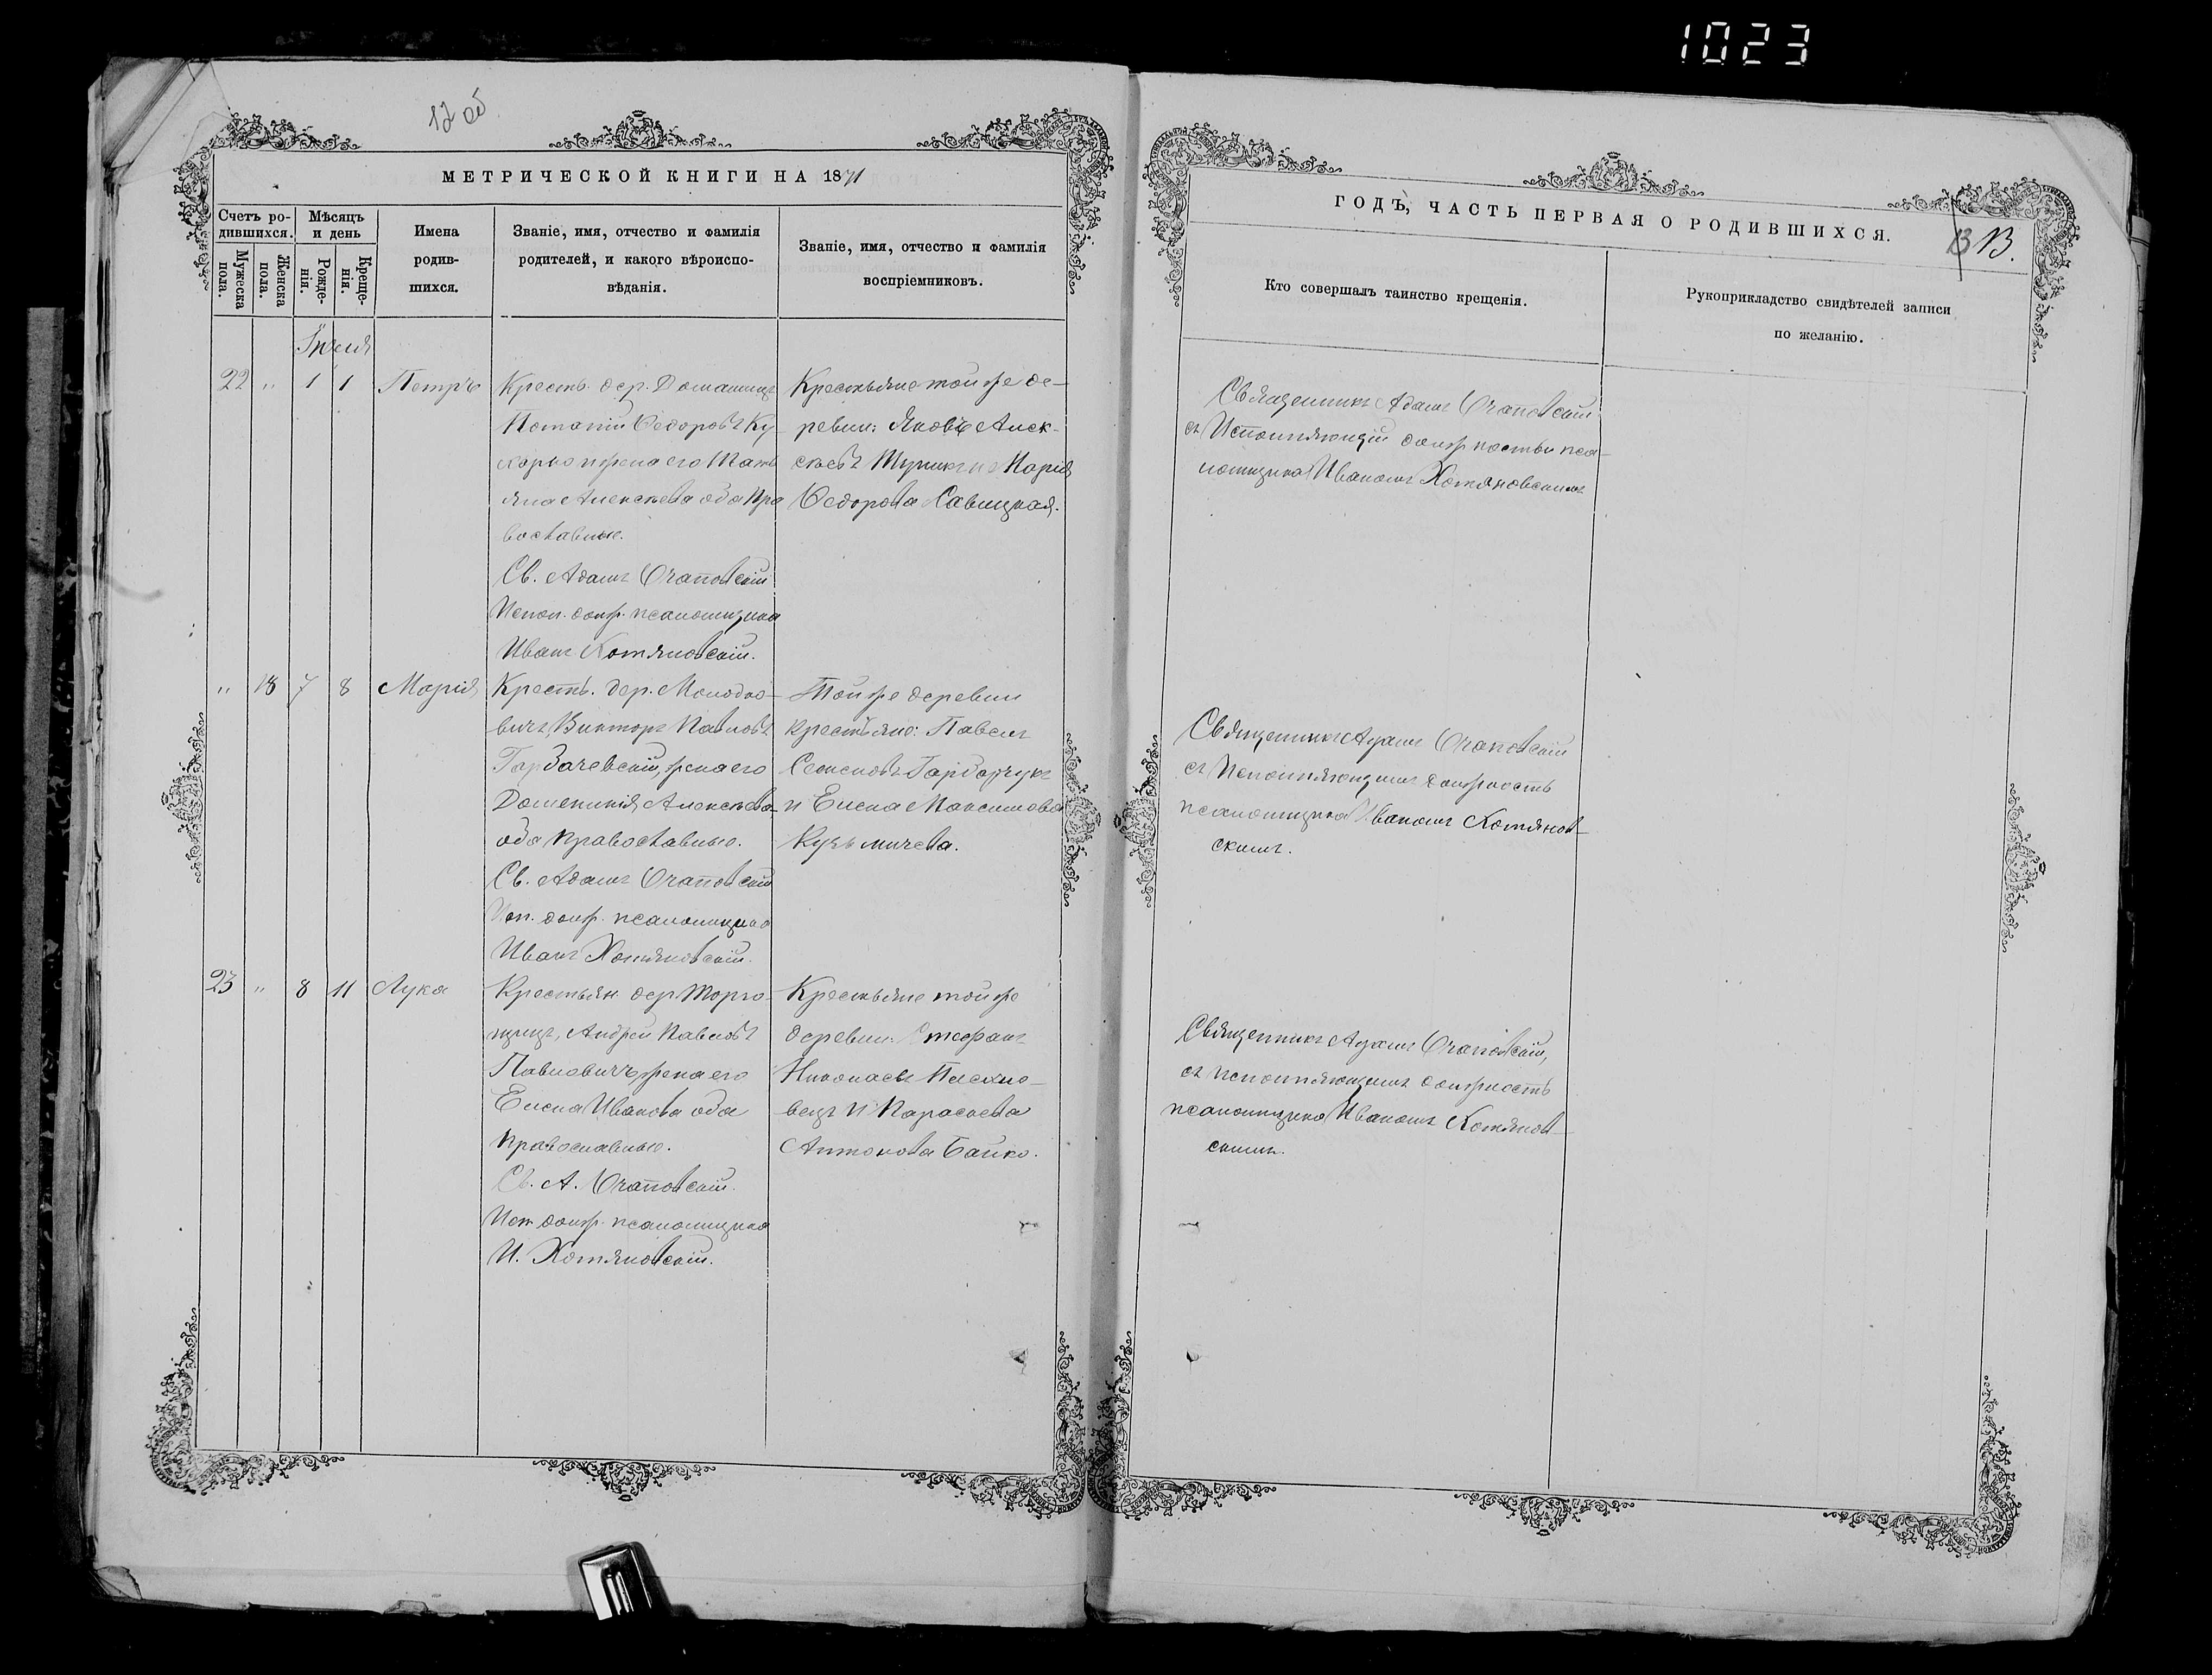 1023
12 об
МЕТРИЧЕСКОЙ КНИГИ НА 1871
Счетъ ро-
дившихся.
Мѣсяцъ
и день
Мужеска
пола.
Женска
пола.
Рожде-
нія.
Креще-
нія.
Имена
родив-
шихся.
Званіе, имя, отчество и фамилія
родителей, и какого вѣроиспо-
вѣданія.
Званіе, имя, отчество и фамилія
воспріемниковъ.
22 " 1 1 Петръ
Крестьян. дер. Домашицъ
Потапій Ѳедоровъ Ку-
харко жена его Тать
яна Алексѣева оба Пра
вославные.
Св. Адамъ Очаповскій
Испол. долж. псаломщика
Иванъ Хотяновскій.
Крестьяне той же де-
ревни: Яковъ Алек-
сѣевъ и Марія
Ѳедорова Савицкая.
" 18 7 8 Марія
Крестьян. дер. Молодко-
вичъ, Викторъ Павловъ
Горбачевскій, жена его
Домникія Алексѣева
оба Православные.
Св. Адамъ Очаповскій
Исп. долж. псаломщика
Иванъ Хотяновскій.
Той же деревни
крестьяне: Павелъ
Семеновъ Горбачукъ
и Елена Максимова
Кузьмичева.
23 " 8 11 Лука
Крестьян. дер. Торго-
щицъ, Андрей Павловъ
Павловичъ, жена его
Елена Иванова оба
Православные.
Св. А. Очаповскій.
Исп. долж. псаломщика
И. Хотяновскій.
Крестьяне той же
деревни: Стефанъ
Николаевъ
и Параскева
Антонова Байко.
ГОДЪ, ЧАСТЬ ПЕРВАЯ О РОДИВШИХСЯ.
13 13.
Кто совершалъ таинство крещенія.
Рукоприкладство свидѣтелей записи
по желанію.
Священникъ Адамъ Очаповскій
съ Исполняющій должность пса-
ломщика Иваномъ Хотяновскимъ
Священникъ Адамъ Очаповскій
съ Исполняющимъ должность
псаломщика Иваномъ Хотянов-
скимъ.
Священникъ Адамъ Очаповскій,
съ исполняющимъ должность
псаломщика Иваномъ Хотянов-
скимъ.